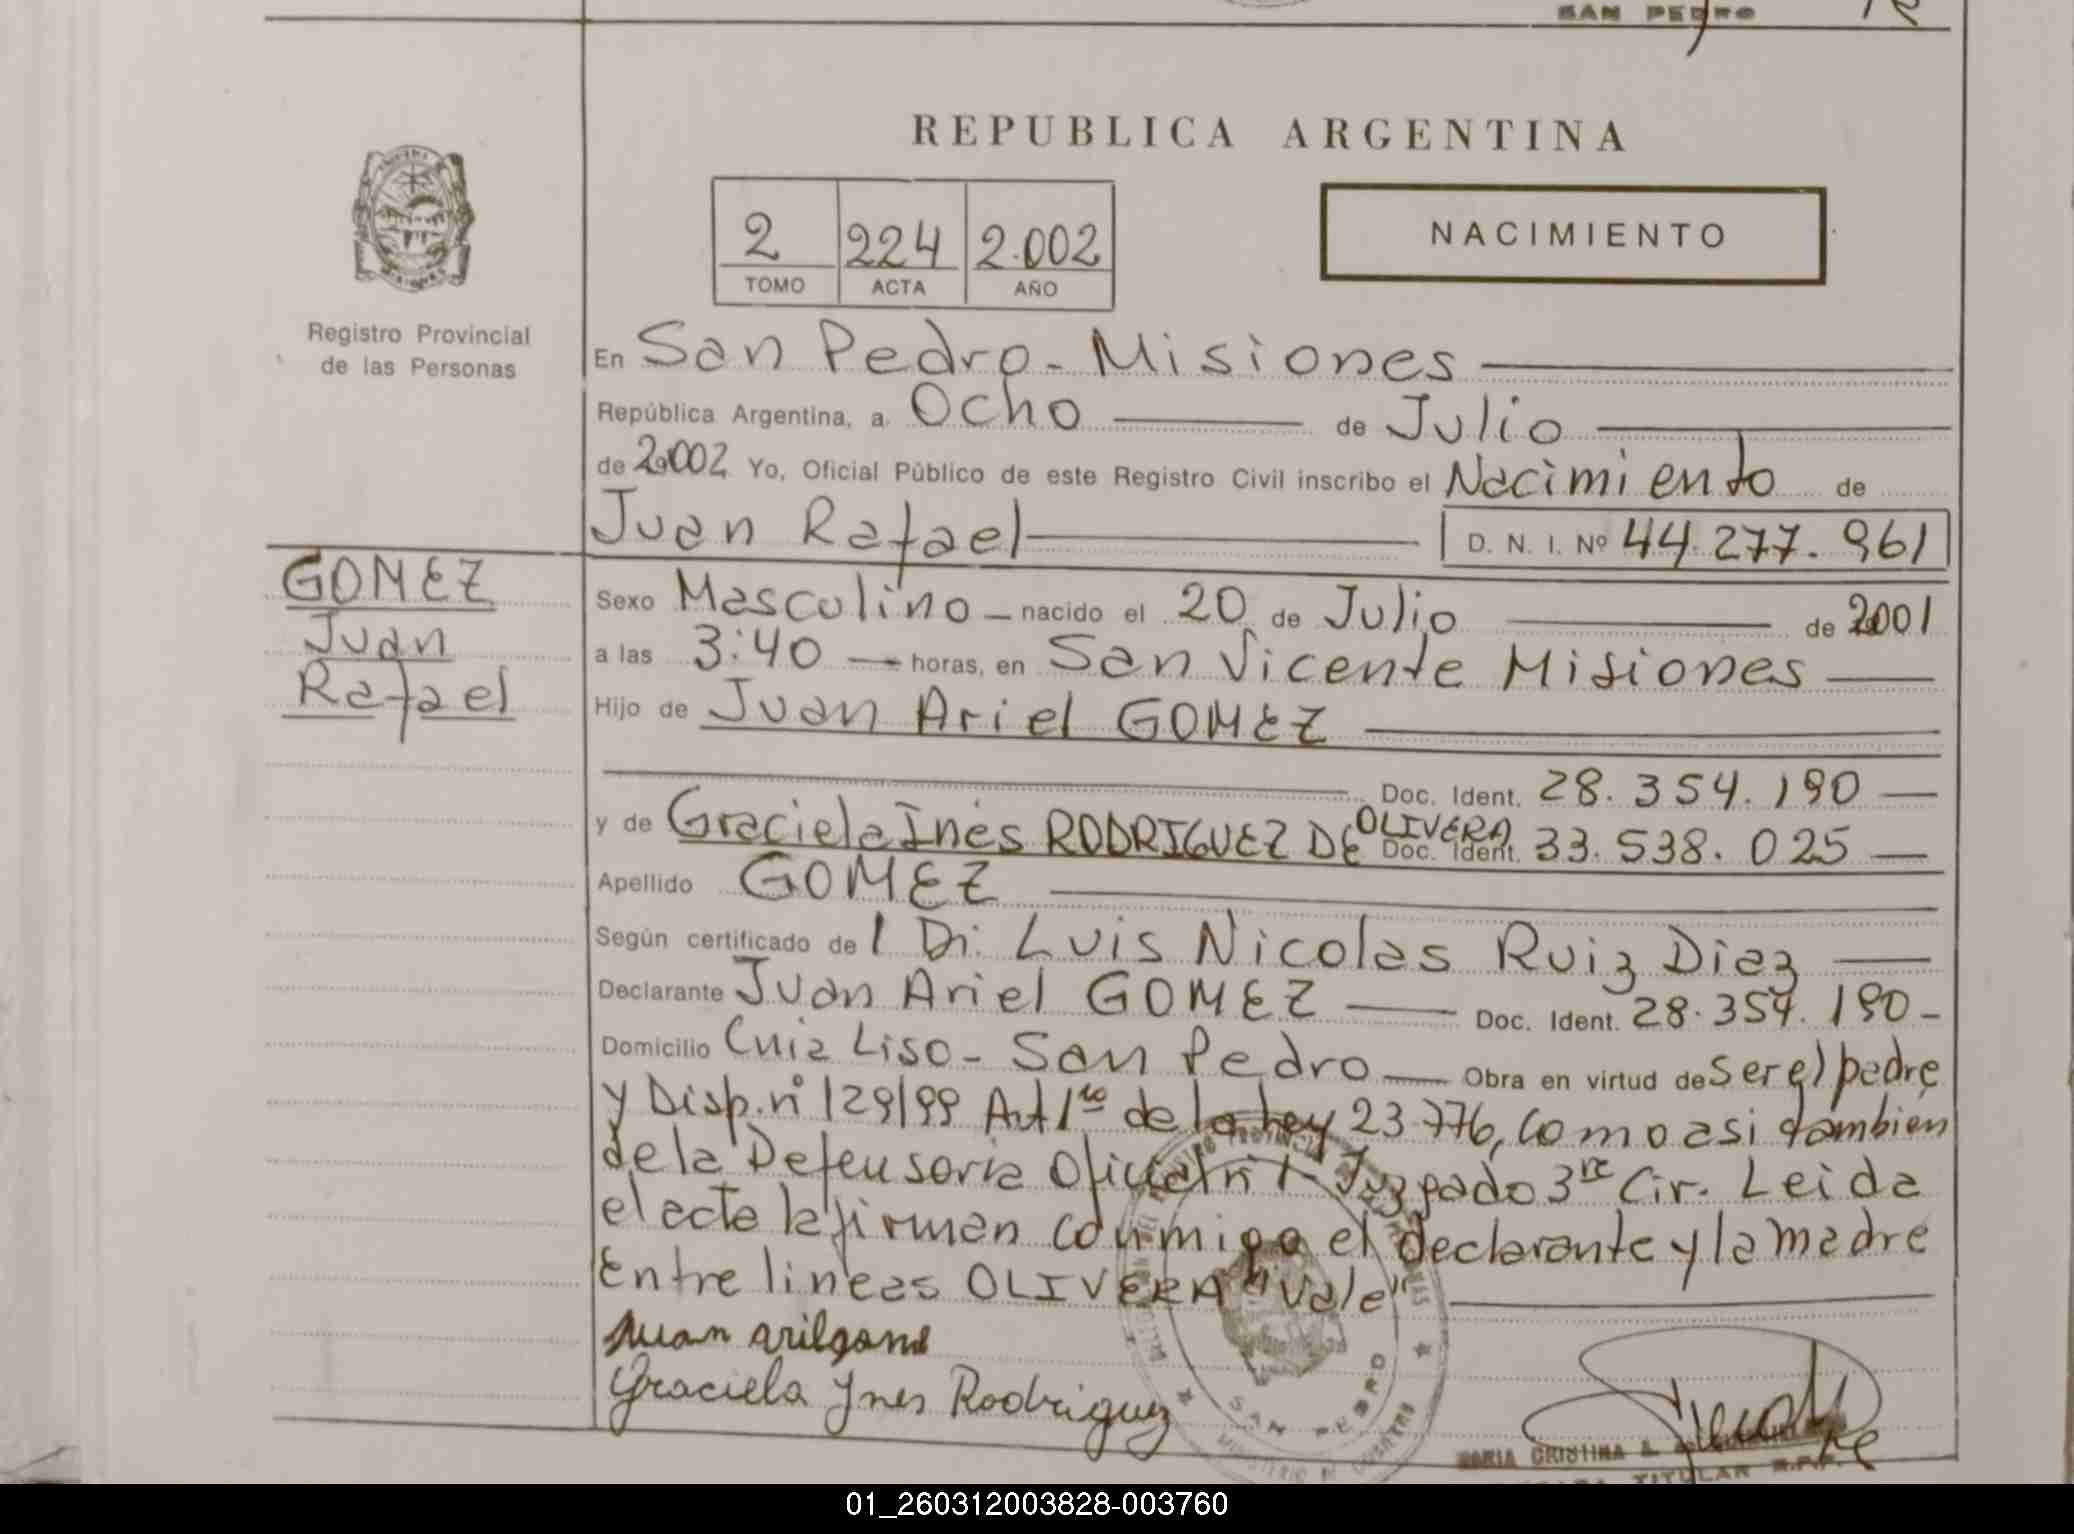 SAN PEDRO
REPUBLICA ARGENTINA
2 224 2.002
TOMO ACTA AÑO
NACIMIENTO
Registro Provincial
de las Personas
En San Pedro - Misiones
República Argentina, a Ocho de Julio
de 2.002 Yo, Oficial Público de este Registro Civil inscribo el Nacimiento de
Juan Rafael D. N. I. Nº 44.277.961
GOMEZ
Juan
Rafael
Sexo Masculino nacido el 20 de Julio de 2001
a las 3:40 horas, en San Vicente Misiones
Hijo de Juan Ariel GOMEZ
Doc. Ident. 28.354.190
y de Graciela Inés RODRIGUEZ DE OLIVERA Doc. Ident. 33.538.025
Apellido GOMEZ
Según certificado de l Dr. Luis Nicolas Ruiz Diaz
Declarante Juan Ariel GOMEZ Doc. Ident. 28.354.190-
Domicilio Cuia Liso - San Pedro Obra en virtud de ser el padre
y Disp. nº 129/99 Art 1ro de la ley 23.776, como asi tambien
de la Defensoria Oficial nº 1 - Juzgado 3ra Cir. Leida
el acta la firman conmigo el declarante y la madre
Entre lineas OLIVERA "Vale"
Juan
Graciela Ynes Rodriguez
SAN PEDRO
MARIA CRISTINA
TITULAR R.P.P.
01_260312003828-003760